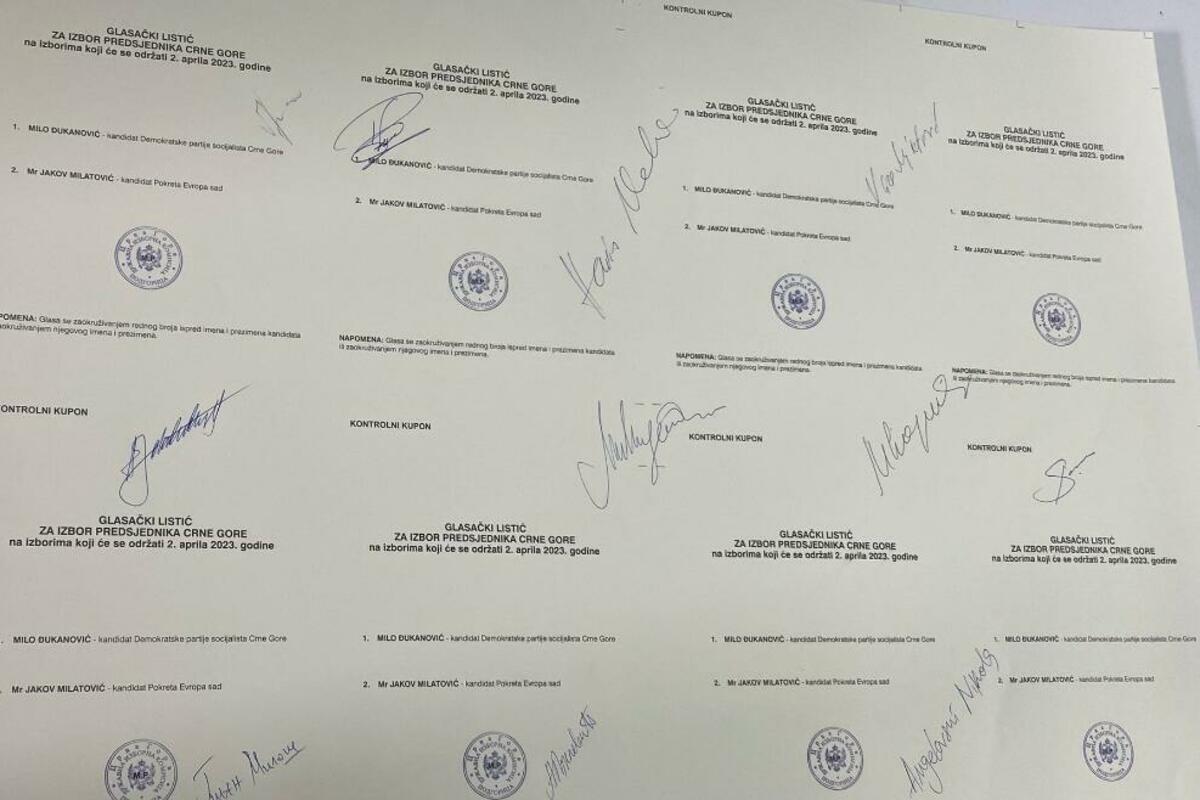 KONTROLNI KUPON
KONTROLNI KUPON
GLASAČKI LISTIĆ
ZA IZBOR PREDSJEDNIKA CRNE GORE
na izborima koji će se održati 2. aprila 2023. godine
1. MILO ĐUKANOVIĆ - kandidat Demokratske partije socijalista Crne Gore
2. Mr JAKOV MILATOVIĆ - kandidat Pokreta Evropa sad
M.P.
POMENA: Glasa se zaokruživanjem rednog broja ispred imena i prezimena kandidata
zaokruživanjem njegovog imena i prezimena.
ONTROLNI KUPON
GLASAČKI LISTIĆ
ZA IZBOR PREDSJEDNIKA CRNE GORE
na izborima koji će se održati 2. aprila 2023. godine
MILO ĐUKANOVIĆ - kandidat Demokratske partije socijalista Crne Gore
2. Mr JAKOV MILATOVIĆ - kandidat Pokreta Evropa sad
NAPOMENA: Glasa se zaokruživanjem rednog broja ispred imena i prezimena kandidata
ili zaokruživanjem njegovog imena i prezimena.
KONTROLNI KUPON
GLASAČKI LISTIĆ
ZA IZBOR PREDSJEDNIKA CRNE GORE
na izborima koji će se održati 2. aprila 2023. godine
1. MILO ĐUKANOVIĆ - kandidat Demokratske partije socijalista Crne Gore
2. Mr JAKOV MILATOVIĆ - kandidat Pokreta Evropa sad
NAPOMENA: Glasa se zaokruživanjem rednog broja ispred imena i prezimena kandidata
ili zaokruživanjem njegovog imena i prezimena.
KONTROLNI KUPON
GLASAČKI LISTIĆ
ZA IZBOR PREDSJEDNIKA CRNE GORE
na izborima koji će se održati 2. aprila 2023. godine
1. MILO ĐUKANOVIĆ - kandidat Demokratske partije socijalista Crne Gore
2. Mr JAKOV MILATOVIĆ - kandidat Pokreta Evropa sad
NAPOMENA: Glasa se zaokruživanjem rednog broja ispred imena i prezimena kandidata
ili zaokruživanjem njegovog imena i prezimena.
KONTROLNI KUPON
GLASAČKI LISTIĆ
ZA IZBOR PREDSJEDNIKA CRNE GORE
na izborima koji će se održati 2. aprila 2023. godine
MILO ĐUKANOVIĆ - kandidat Demokratske partije socijalista Crne Gore
Mr JAKOV MILATOVIĆ - kandidat Pokreta Evropa sad
M.P.
GLASAČKI LISTIĆ
ZA IZBOR PREDSJEDNIKA CRNE GORE
na izborima koji će se održati 2. aprila 2023. godine
1. MILO ĐUKANOVIĆ - kandidat Demokratske partije socijalista Crne Gore
2. Mr JAKOV MILATOVIĆ - kandidat Pokreta Evropa sad
GLASAČKI LISTIĆ
ZA IZBOR PREDSJEDNIKA CRNE GORE
na izborima koji će se održati 2. aprila 2023. godine
1. MILO ĐUKANOVIĆ - kandidat Demokratske partije socijalista Crne Gore
2. Mr JAKOV MILATOVIĆ - kandidat Pokreta Evropa sad
GLASAČKI LISTIĆ
ZA IZBOR PREDSJEDNIKA CRNE GORE
na izborima koji će se održati 2. aprila 2023. godine
1. MILO ĐUKANOVIĆ - kandidat Demokratske partije socijalista Crne Gore
2. Mr JAKOV MILATOVIĆ - kandidat Pokreta Evropa sad